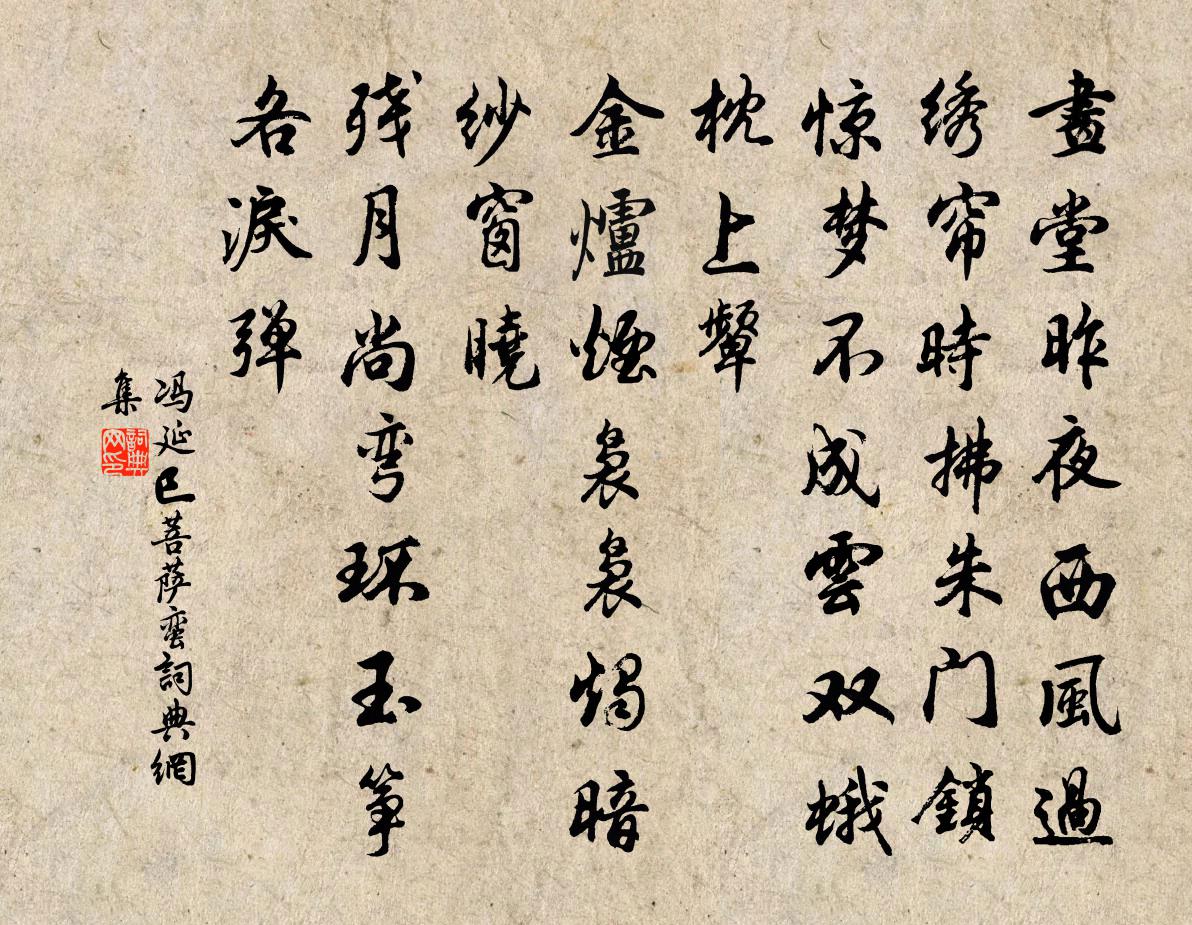 畫堂昨夜西風過
绣帘時拂朱门鎖
惊梦不成雲双蛾
枕上顰
金爐煙裊裊燭暗
纱窗曉
残月尚弯环玉筝
各淚弹
冯延巳菩萨蛮詞典網
集
詞典网印